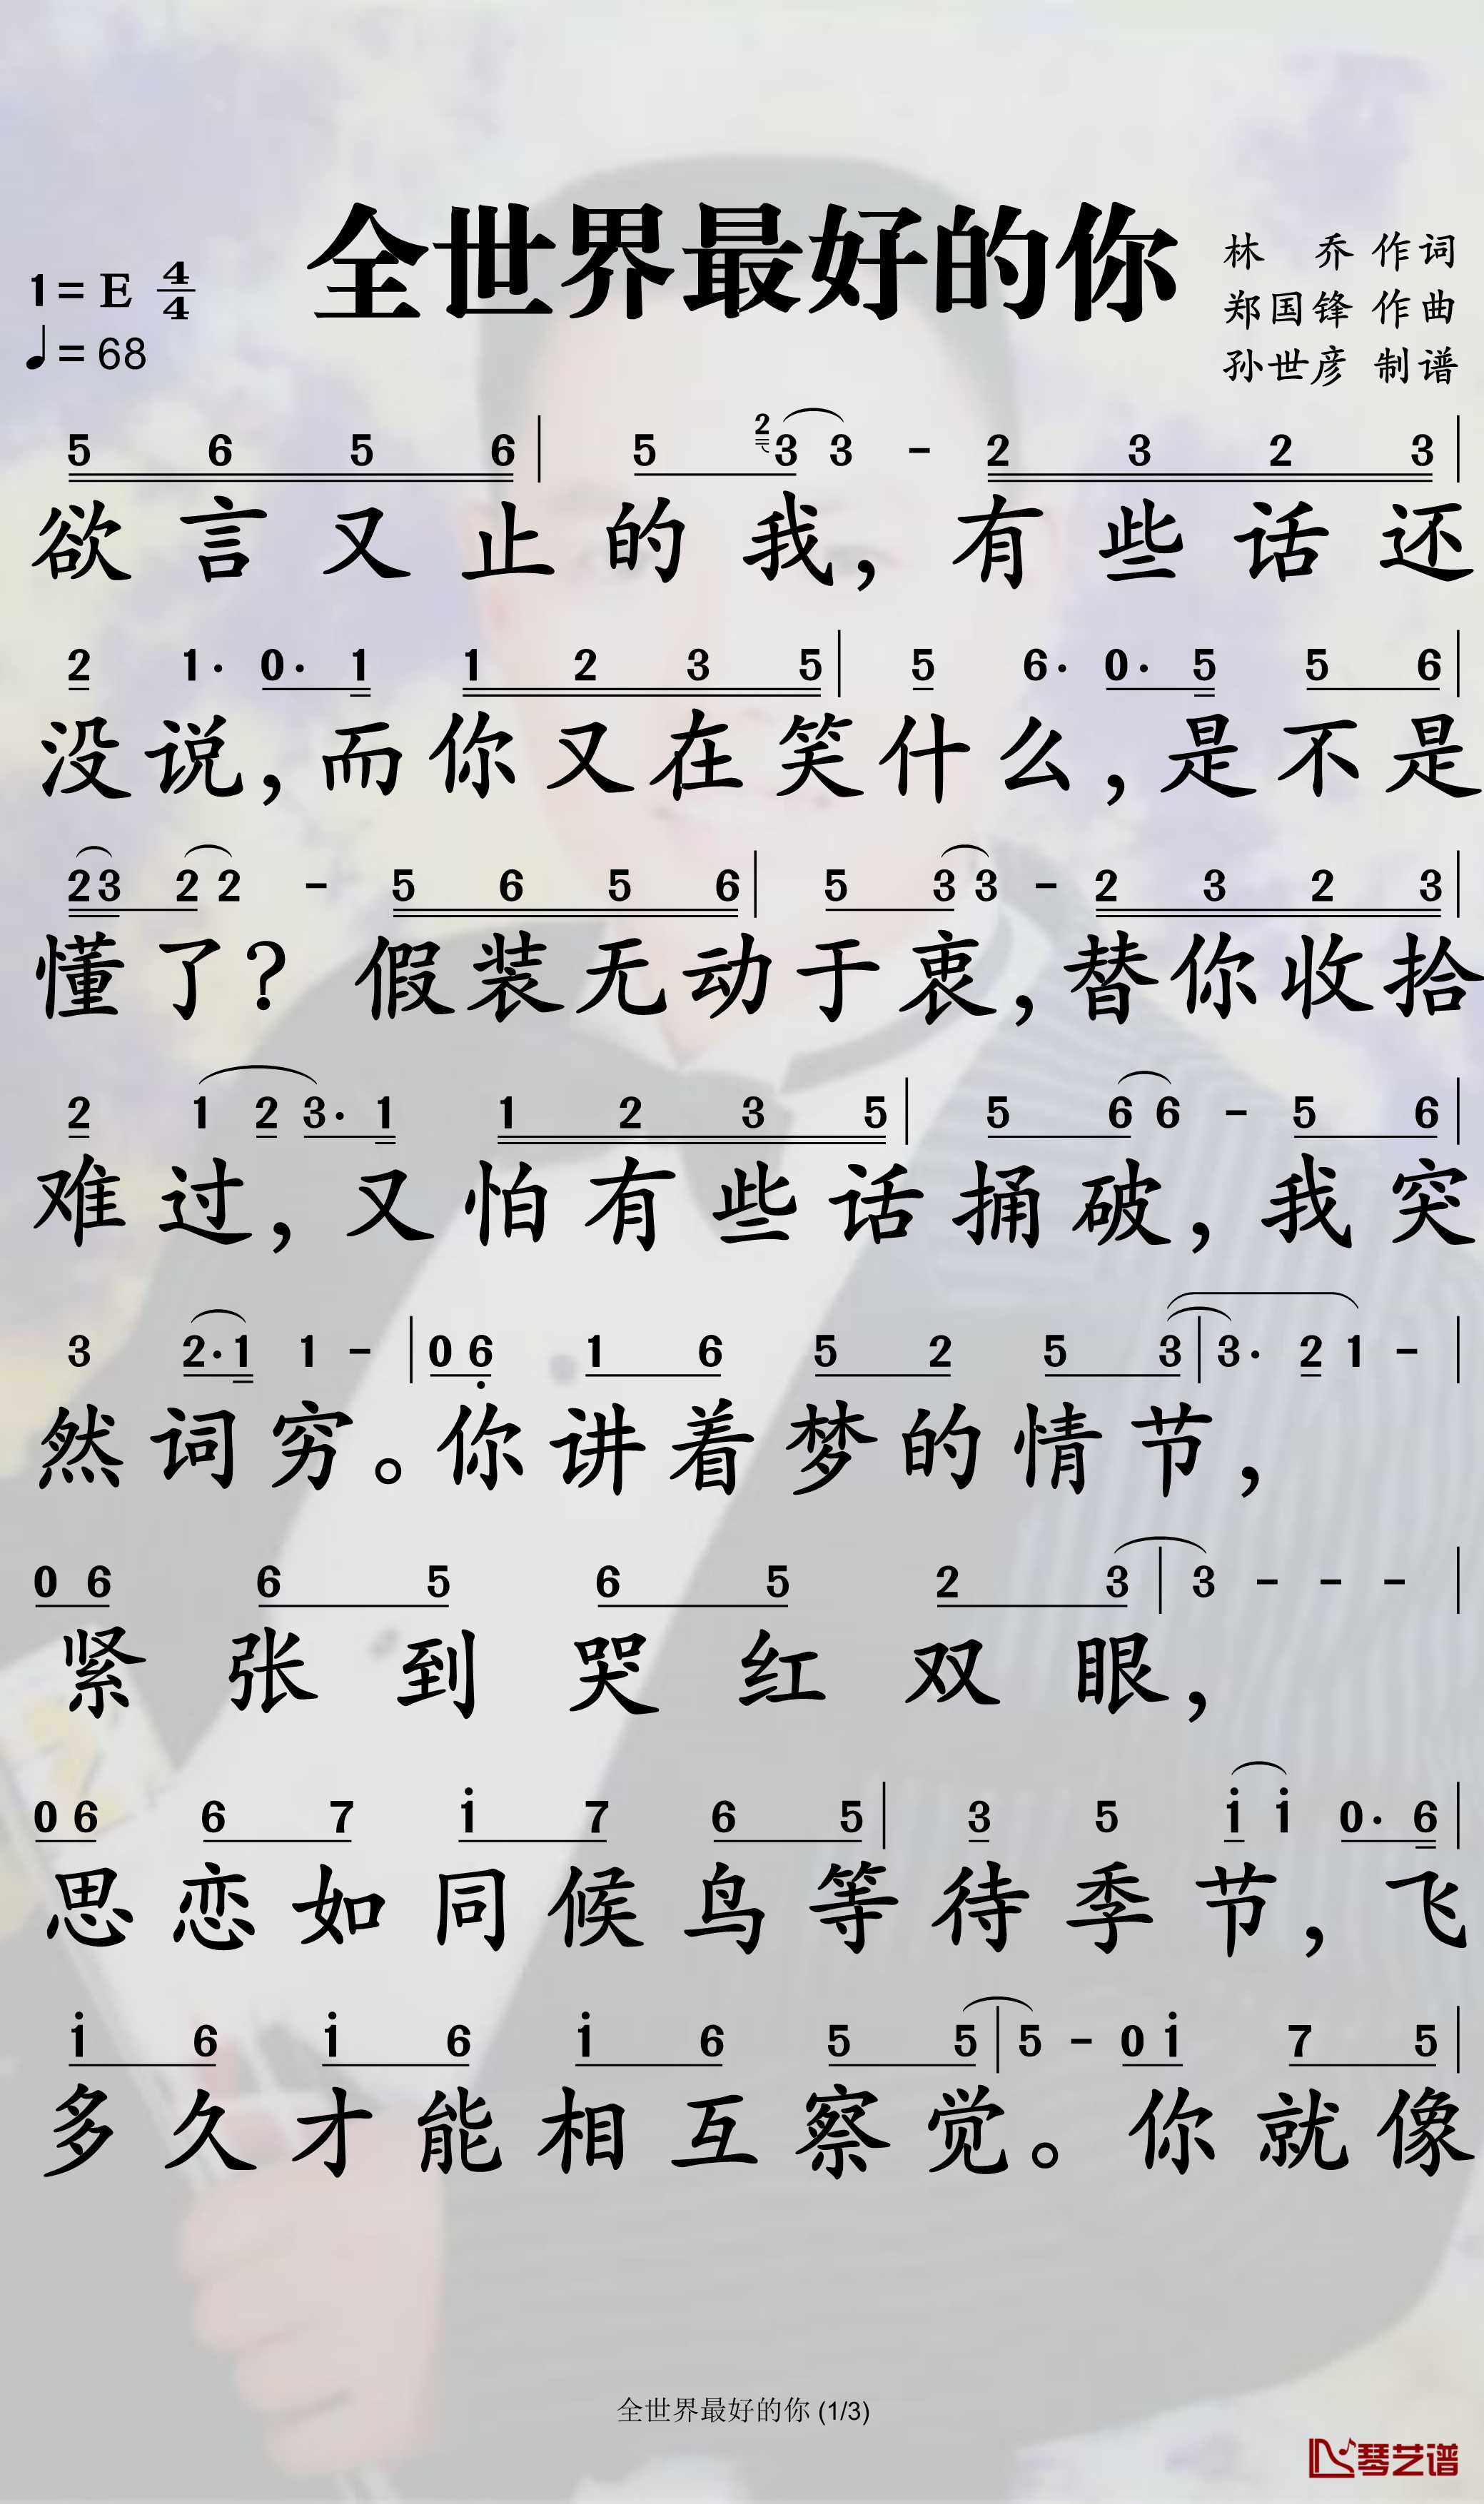 全世界最好的你
1=E 4/4
♩=68
林 乔 作词
郑国锋 作曲
孙世彦 制谱
5 6 5 6 | 5 2 3 3 - 2 3 2 3 |
欲言又止的我，有些话还
2 1· 0· 1 1 2 3 5 | 5 6· 0· 5 5 6 |
没说，而你又在笑什么，是不是
23 2 2 - 5 6 5 6 | 5 3 3 - 2 3 2 3 |
懂了？假装无动于衷，替你收拾
2 1 2 3· 1 1 2 3 5 | 5 6 6 - 5 6 |
难过，又怕有些话捅破，我突
3 2·1 1 - | 0 6̣ 1 6 5 2 5 3 | 3· 2 1 - |
然词穷。你讲着梦的情节，
0 6 6 5 6 5 2 3 | 3 - - - |
紧张到哭红双眼，
0 6 6 7 1̇ 7 6 5 | 3 5 1̇ 1̇ 0· 6 |
思恋如同候鸟等待季节，飞
1̇ 6 1̇ 6 1̇ 6 5 5 | 5 - 0 1̇ 7 5 |
多久才能相互察觉。你就像
全世界最好的你 (1/3)
琴艺谱